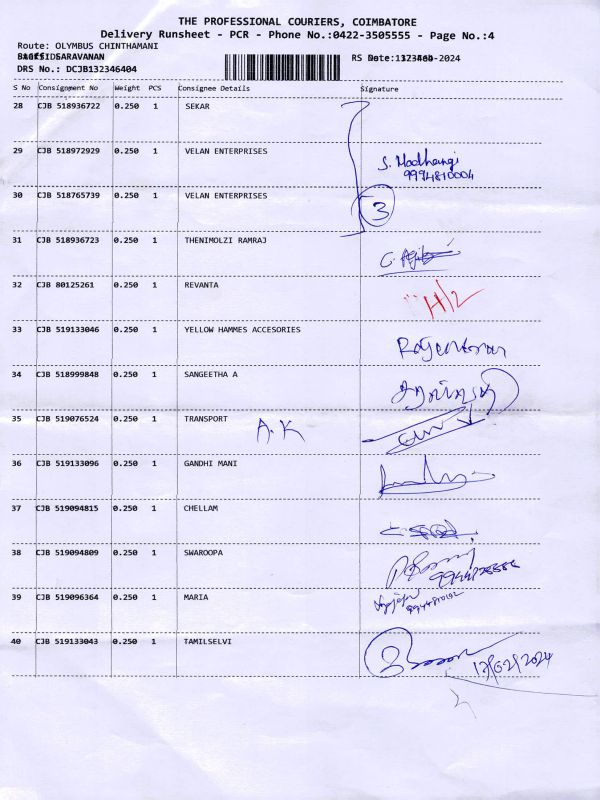 THE PROFESSIONAL COURIERS, COIMBATORE
Delivery Runsheet - PCR - Phone No.:0422-3505555 - Page No.:4
Route: OLYMBUS CHINTHAMANI
SARAVANAN
RS Date: -2024
DRS No.: DCJB132346404
S No Consignment No Weight PCS Consignee Details Signature
28 CJB 518936722 0.250 1 SEKAR
29 CJB 518972929 0.250 1 VELAN ENTERPRISES
S. Madhangi
9994810004
30 CJB 518765739 0.250 1 VELAN ENTERPRISES
3
31 CJB 518936723 0.250 1 THENIMOLZI RAMRAJ
32 CJB 80125261 0.250 1 REVANTA H/2
33 CJB 519133046 0.250 1 YELLOW HAMMES ACCESORIES
34 CJB 518999848 0.250 1 SANGEETHA A
35 CJB 519076524 0.250 1 TRANSPORT A.K
36 CJB 519133096 0.250 1 GANDHI MANI
37 CJB 519094815 0.250 1 CHELLAM
38 CJB 519094809 0.250 1 SWAROOPA
39 CJB 519096364 0.250 1 MARIA
40 CJB 519133043 0.250 1 TAMILSELVI
12/02/2024